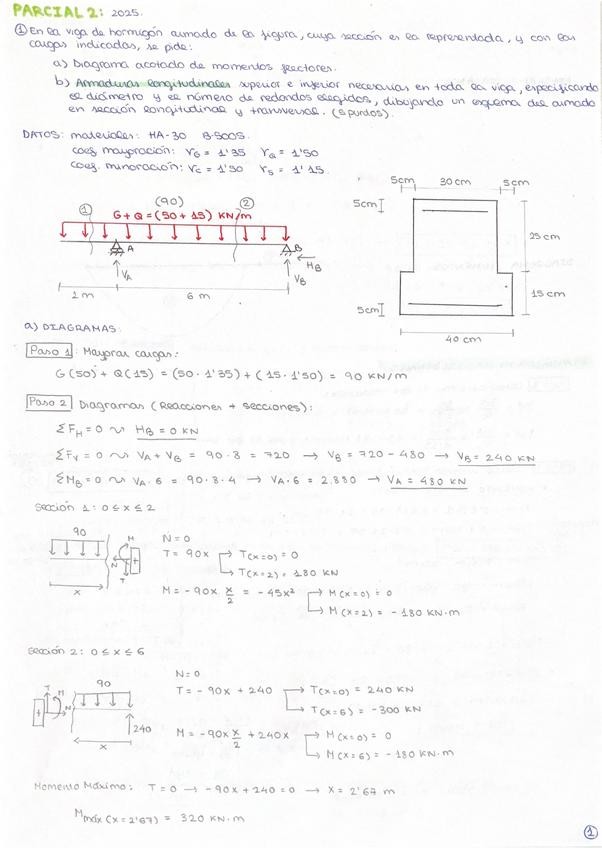 PARCIAL 2: 2025.
① En la viga de hormigón armado de la figura, cuya sección es la representada, y con las
cargas indicadas, se pide:
a) Diagrama acotado de momentos flectores.
b) Armaduras longitudinales superior e inferior necesarias en toda la viga, especificando
el diámetro y el número de redondos elegidos, dibujando un esquema del armado
en sección longitudinal y transversal. (5 puntos).
DATOS: materiales: HA-30 B-500S.
coef mayoración: γG = 1'35 γQ = 1'50
coef. minoración: γc = 1'50 γs = 1'15.
(90)
① ②
G+Q = (50+15) KN/m
A B
VA VB HB
2 m 6 m
5cm 30cm 5cm
5cm
25cm
15cm
5cm
40cm
a) DIAGRAMAS:
Paso 1: Mayorar cargas:
G(50) + Q(15) = (50·1'35) + (15·1'50) = 90 KN/m
Paso 2 Diagramas (Reacciones + secciones):
ΣFH = 0 ~ HB = 0 KN
ΣFV = 0 ~ VA + VB = 90·8 = 720 → VB = 720 - 480 → VB = 240 KN
ΣMB = 0 ~ VA·6 = 90·8·4 → VA·6 = 2.880 → VA = 480 KN
Sección 1: 0 ≤ x ≤ 2
90
M
N
T
x
N = 0
T = 90x → T(x=0) = 0
→ T(x=2) = 180 KN
M = -90x x/2 = -45x² → M(x=0) = 0
→ M(x=2) = -180 KN·m
Sección 2: 0 ≤ x ≤ 6
T M
N
90
240
x
N = 0
T = -90x + 240 → T(x=0) = 240 KN
→ T(x=6) = -300 KN
M = -90x x/2 + 240x → M(x=0) = 0
→ M(x=6) = -180 KN·m
Momento Máximo: T = 0 → -90x + 240 = 0 → x = 2'67 m
Mmáx (x = 2'67) = 320 KN·m
①